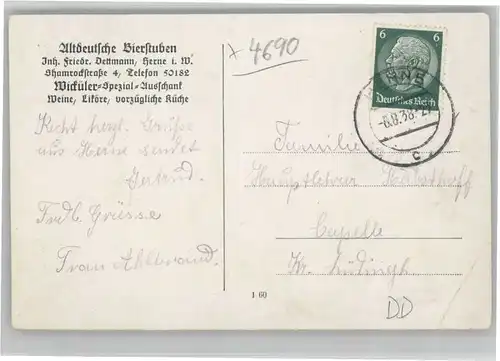 Altdeutsche Bierstuben
Inh. Friedr. Dettmann, Herne i. W.
Shamrockstraße 4, Telefon 50182
Wicküler-Spezial-Ausschank
Weine, Liköre, vorzügliche Küche
Recht herzl. Grüße
aus Herne sendet
Gertrud.
Frdl. Grüsse
Frau
x 4690
6 6
Deutsches Reich
HERNE
-8.8.38
c
Familie
Hauptlehrer
Capelle
Kr. Lüdingh.
1 60
DD